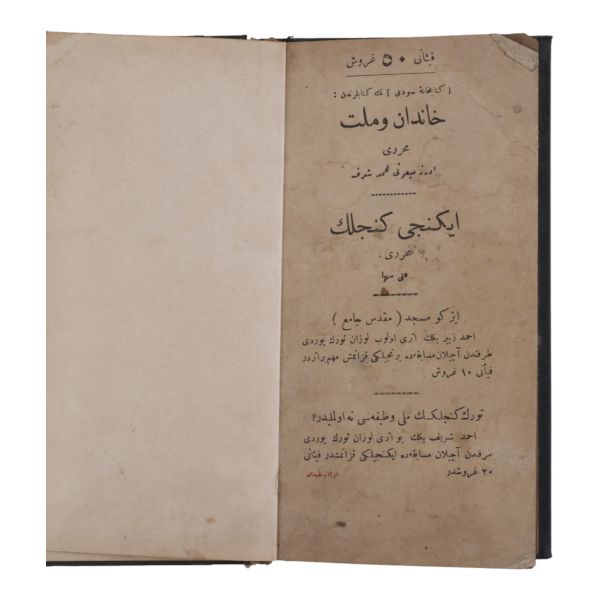 فیئاتی ٥٠ غروش
[ کتابخانهٔ سودی ] نك کتابلرندن :
خاندان و ملت
محرری
ادرنه مبعوثی محمد شرف
ایکنجی کنجلك
محرری :
علی سها
ایز کو مسجد ( مقدس جامع )
احمد زبیر بكك اثری اولوب لوزان تورك یوردی
طرفندن آچیلان مسابقه‌ده برنجیلکی قزانمش مهم براثردر
فیأتی ١٠ غروش
تورك کنجلکنك ملی وظیفه‌سی نه اولملیدر؟
احمد شریف بكك بو اثری لوزان تورك یوردی
طرفندن آچیلان مسابقه‌ده ایکنجیلکی قزانمشدر فیئاتی
٢٠ غروشدر